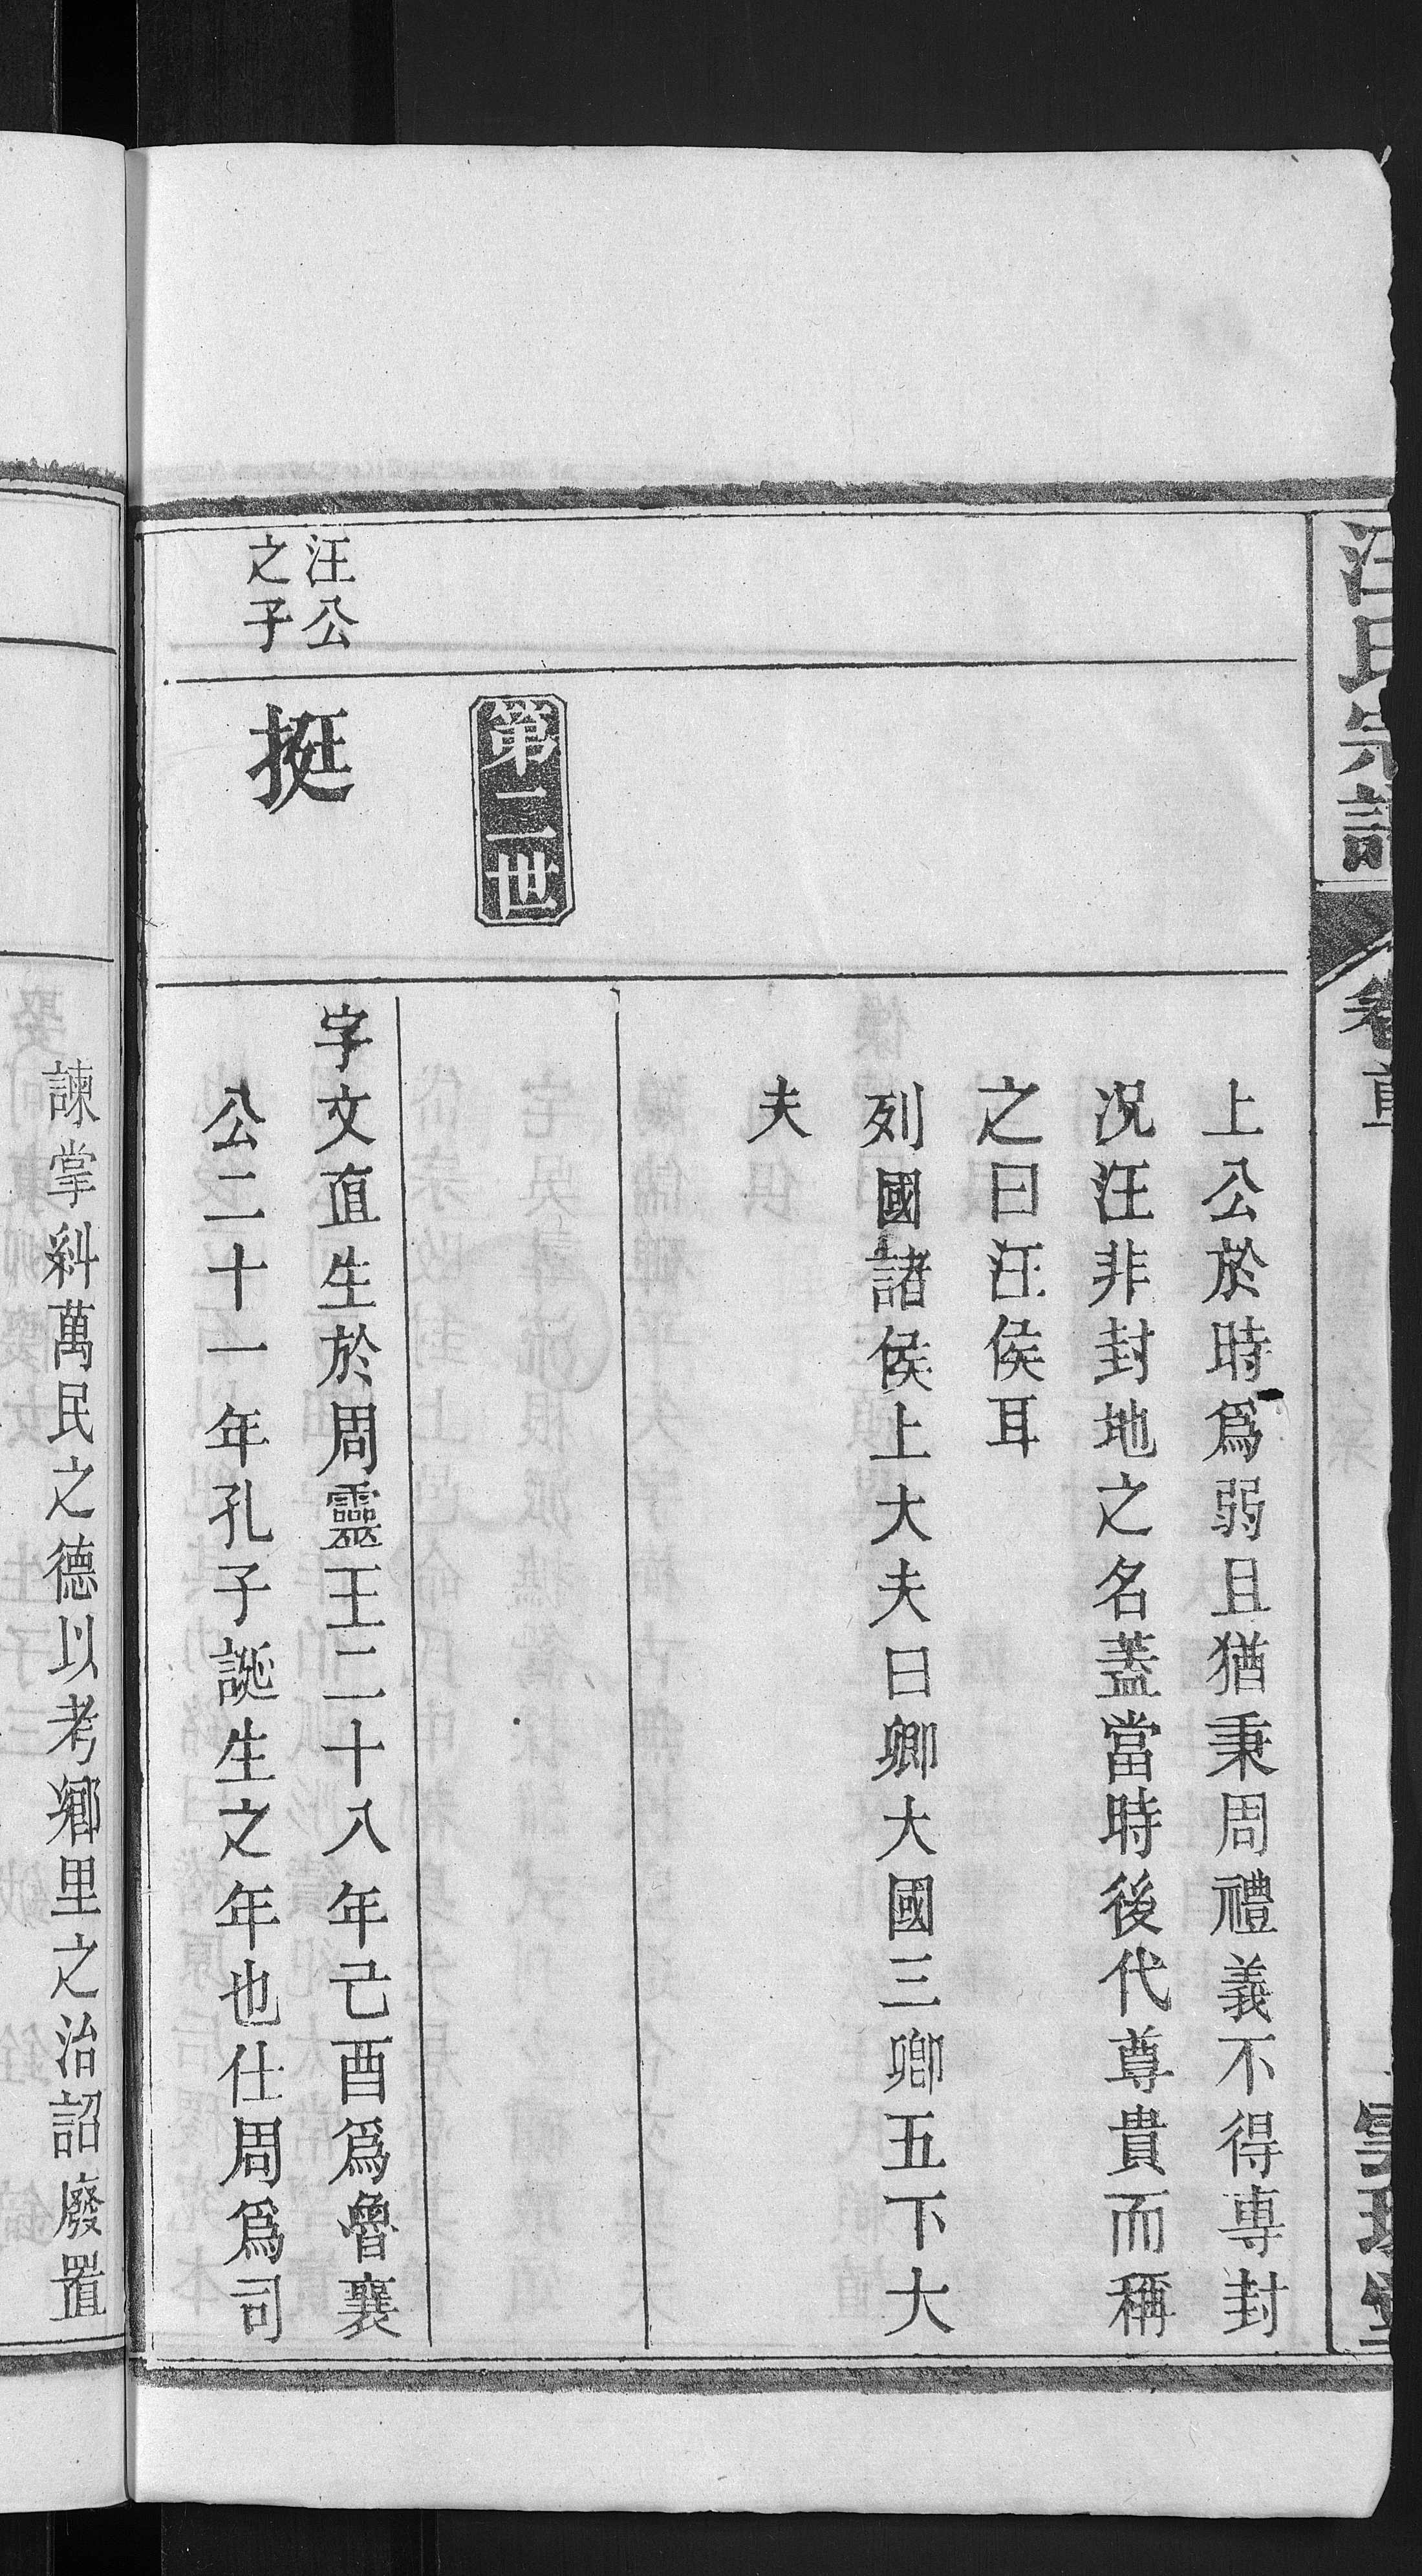 汪氏宗譜
卷首
上公於時爲弱且猶秉周禮義不得專封
况汪非封地之名蓋當時後代尊貴而稱
之曰汪侯耳
列國諸侯上大夫曰卿大國三卿五下大
夫
第二世
汪公
之子
挺
字文直生於周靈王二十八年己酉爲魯襄
公二十一年孔子誕生之年也仕周爲司
諫掌糾萬民之德以考鄉里之治詔廢置